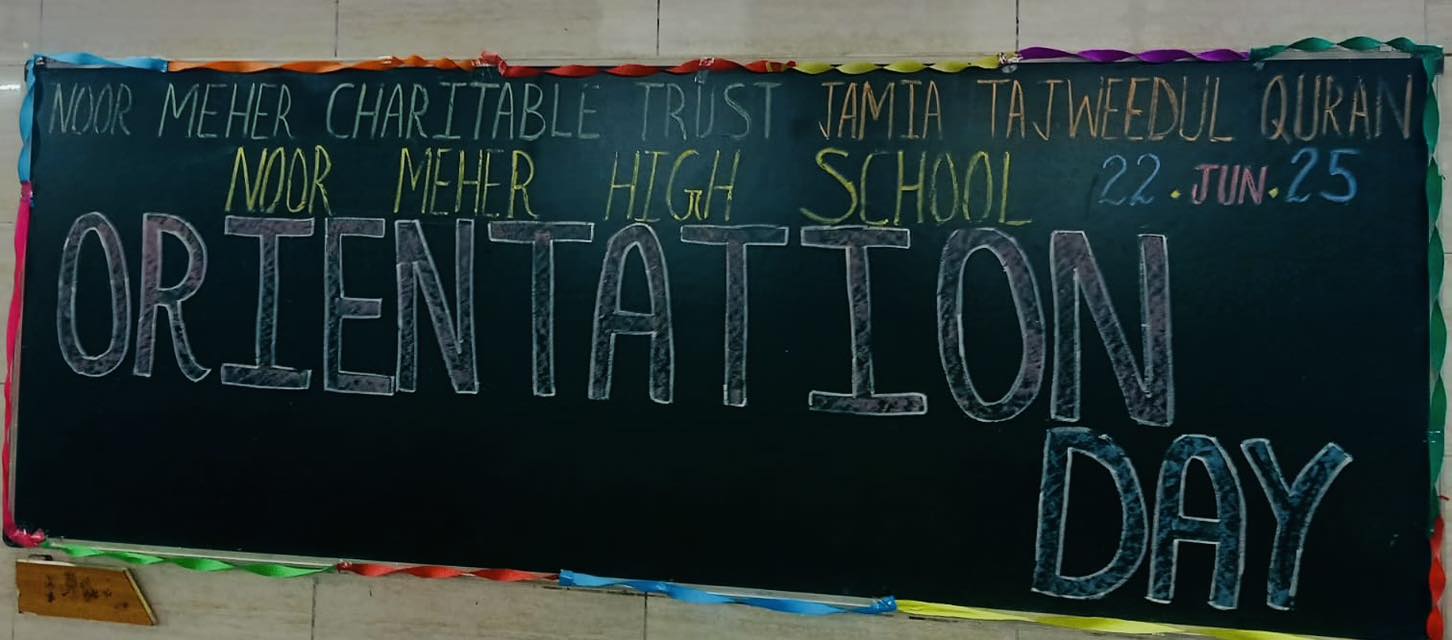 NOOR MEHER CHARITABLE TRUST JAMIA TAJWEEDUL QURAN
NOOR MEHER HIGH SCHOOL 22.JUN.25
ORIENTATION
DAY